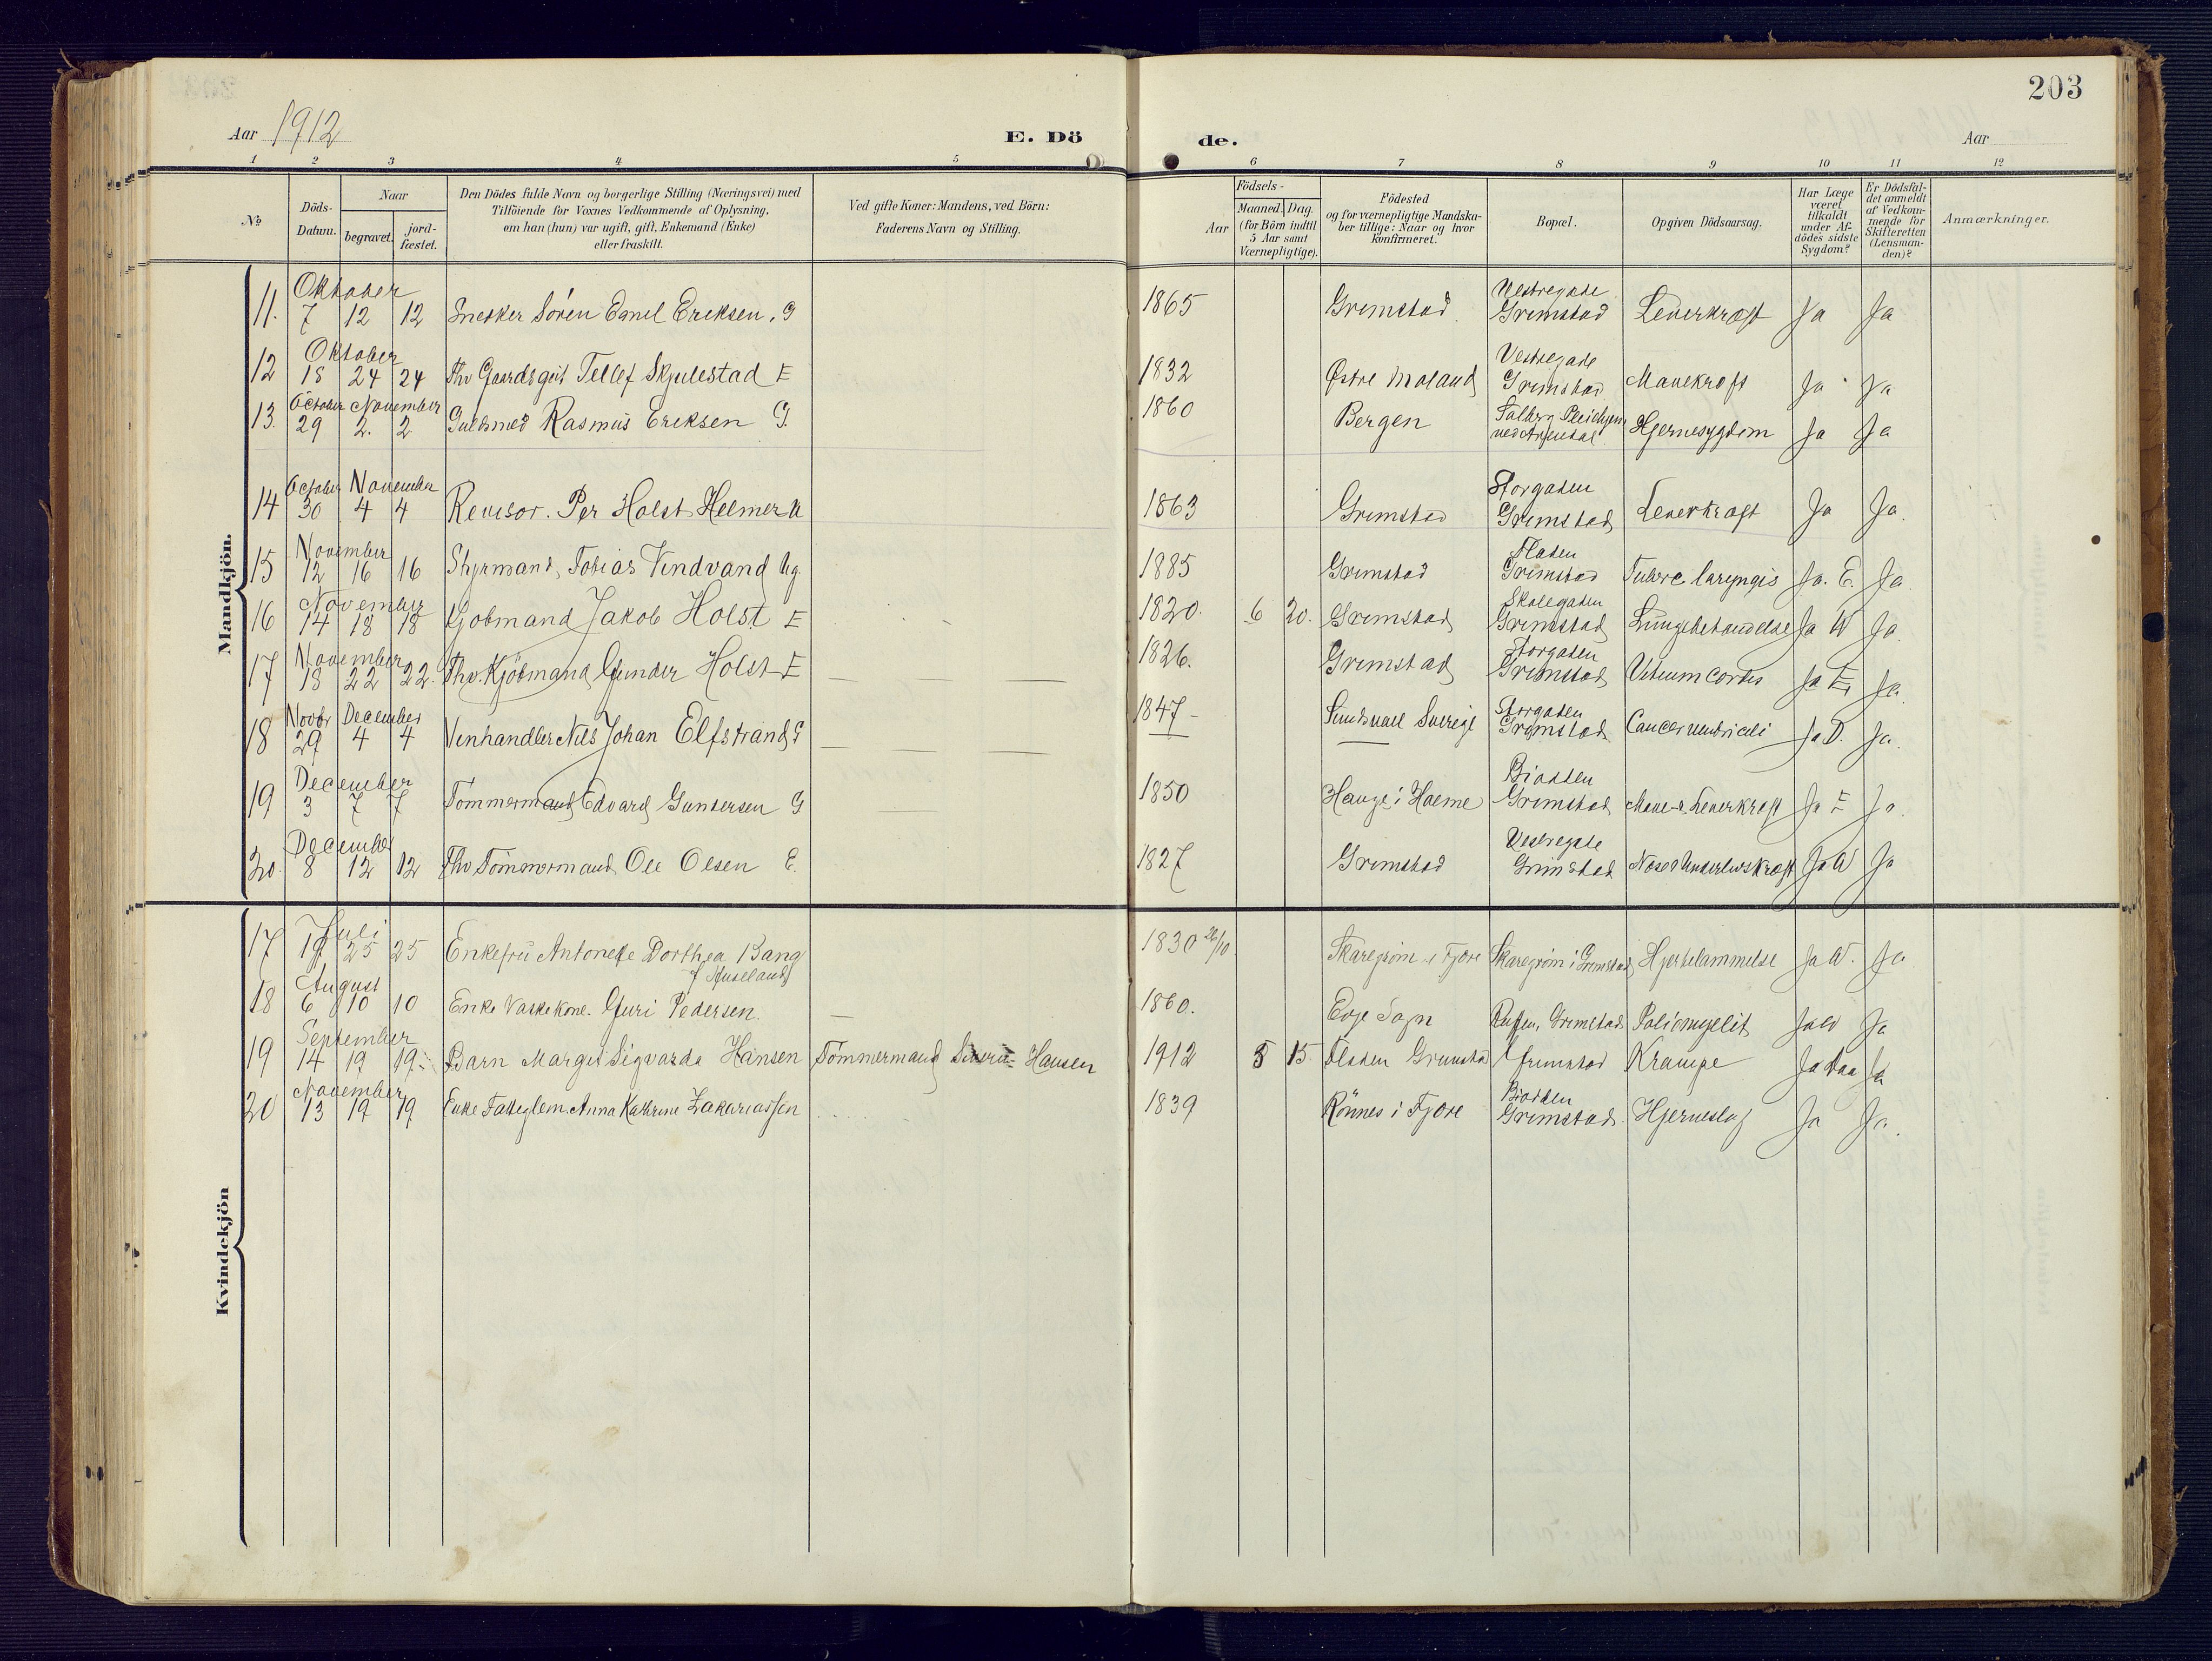 203
Aar 1912
E. Dö
de.
Aar
1 2 3 4 5 6 7 8 9 10 11 12
No
Döds-Datum.
Naar
begravet.
jord-fæstet.
Den Dödes fulde Navn og borgerlige Stilling (Næringsvei) med
Tilföiende for Voxnes Vedkommende af Oplysning,
om han (hun) var ugift, gift, Enkemand (Enke)
eller fraskilt.
Ved gifte Koner: Mandens, ved Börn:
Faderens Navn og Stilling.
Födsels-
Aar
Maaned. Dag.
(for Börn indtil
5 Aar samt
Værnepligtige).
Födested
og for værnepligtige Mandska-
ber tillige: Naar og hvor
konfirmeret.
Bopæl.
Opgiven Dödsaarsag.
Har Læge
været
tilkaldt
under Af-
dödes sidste
Sygdom?
Er Dödsfal-
det anmeldt
af Vedkom-
mende for
Skifteretten
(Lensman-
den)?
Anmærkninger.
Mandkjön.
11. Oktober 7 12 12 Snedker Sören Emil Eriksen, G 1865 Grimstad Vestregade Grimstad Leverkræft Ja Ja
12 Oktober 18 24 24 Fhv Gaardsgut Tellef Skjulestad E 1832 Østre Moland Vestregade Grimstad Mavekræft Ja Ja
13. October November 29 2. 2 Guldsmed Rasmus Eriksen G. 1860 Bergen ved Arendal Hjernesygdom Ja Ja
14 October November 30 4 4 Revisor. Per Holst Helmer U 1863 Grimstad Storgaden Grimstad Leverkræft Ja Ja.
15 November 12 16 16 Styrmand, Tobias Vindvand Ug. 1885 Grimstad Fladen Grimstad Tuberc laryngis Ja. E. Ja
16 November 14 18 18 Kjöbmand Jakob Holst E 1820. 6 20. Grimstad Skolegaden Grimstad Lungebetændelse Ja W Ja.
17 November 18 22 22. Fhv. Kjöbmand Gunder Holst E 1826. Grimstad Storgaden Grimstad Vitium Cordis Ja E Ja
18 Novbr December 29 4 4 Vinhandler Nils Johan Elfstrand G 1847 Sundsvall Sverige Storgaden Grimstad Cancer ventriculi Ja D. Ja.
19 December 3 7 7 Tömmermand Edvard Gundersen G 1850 Hauge i Holme Biodden Grimstad Mave- & Leverkræft Ja E Ja.
20. December 8 12 12 Fhv Tömmermand Ole Olsen E. 1827 Grimstad Vestregade Grimstad Nase & Underlivskræft Ja W Ja
Kvindekjön
17 Juli 19 25 25 Enkefru Antonette Dorthea Bang 1830 26/10 Skaregrøm i Fjære Skaregrøm i Grimstad Hjertelammelse Ja W. Ja
18 August 6 10 10 Enke Vaskekone. Guri Pedersen. 1860. Grimstad Poliomyelit Ja W Ja
19 September 14 19 19. Barn Margit Sigvarda Hansen Tömmermand Hansen 1912 5 15 Fladen Grimstad Grimstad Krampe Ja Ja
20 November 13 19 19 Enke Fattiglem. Anna Kathrine Zakariassen 1839 Rönnes i Fjære Biodden Grimstad. Hjerneslag Ja Ja.